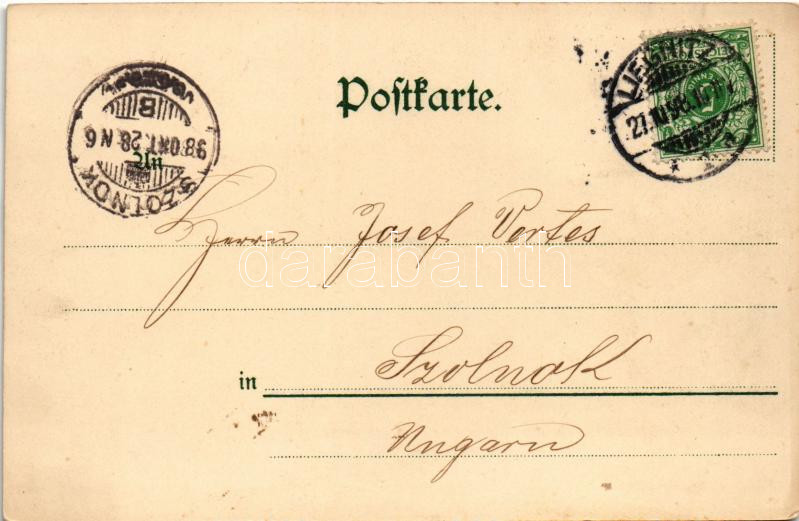 Postkarte.
LIEGNITZ
27.10.98.
SZOLNOK
98 OKT. 28. N 6
B
An
Herrn Josef Vertes
darabanth
in Szolnok
Ungarn